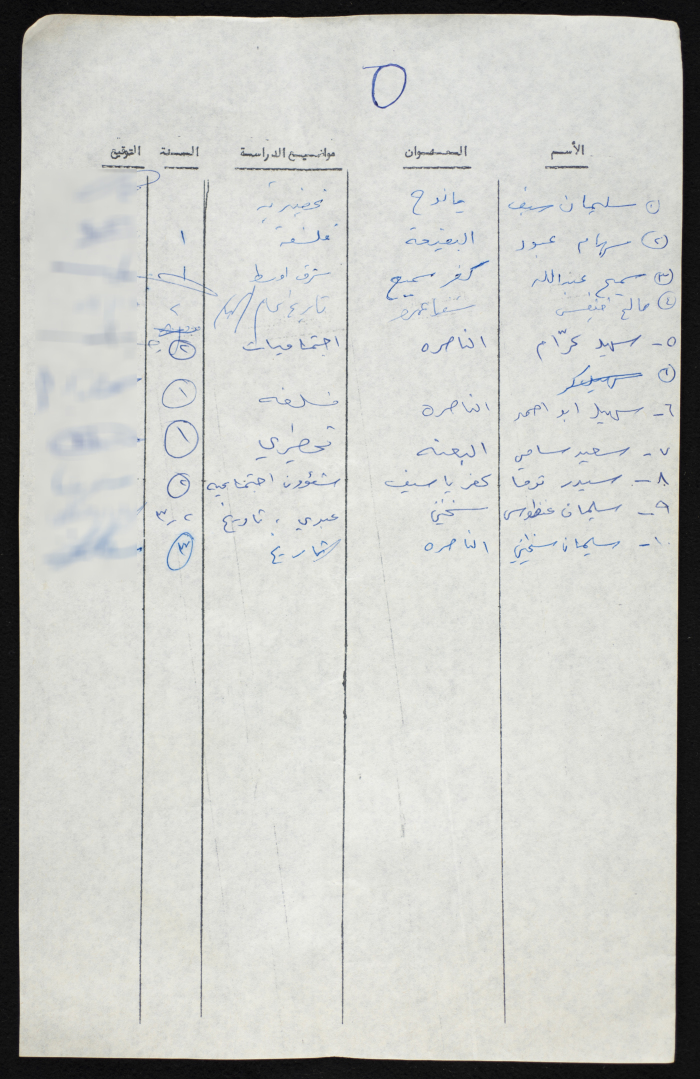 ٥
الأسم العنوان مواضيع الدراسة السنة التوقيع
١ سليمان سيف يانوح تحضيرية
٢ سهام عبود البقيعة فلسفة ١
٣ سميح عبدالله كفر سميع شرق اوسط ١
٤ صالح شفاعمرو تاريخ عام ٢
٥- سهيل كرّام الناصره اجتماعيات ٢
٦- سهيل ابو احمد الناصره فلسفه ١
٧- سعيد سامي البعنه تحضيري ١
٨- سيدر توما كفر ياسيف شؤون اجتماعيه ٢
٩- سليمان سخنين عبري، تاريخ ٢،٣
١٠- سليمان الناصره تاريخ ٣